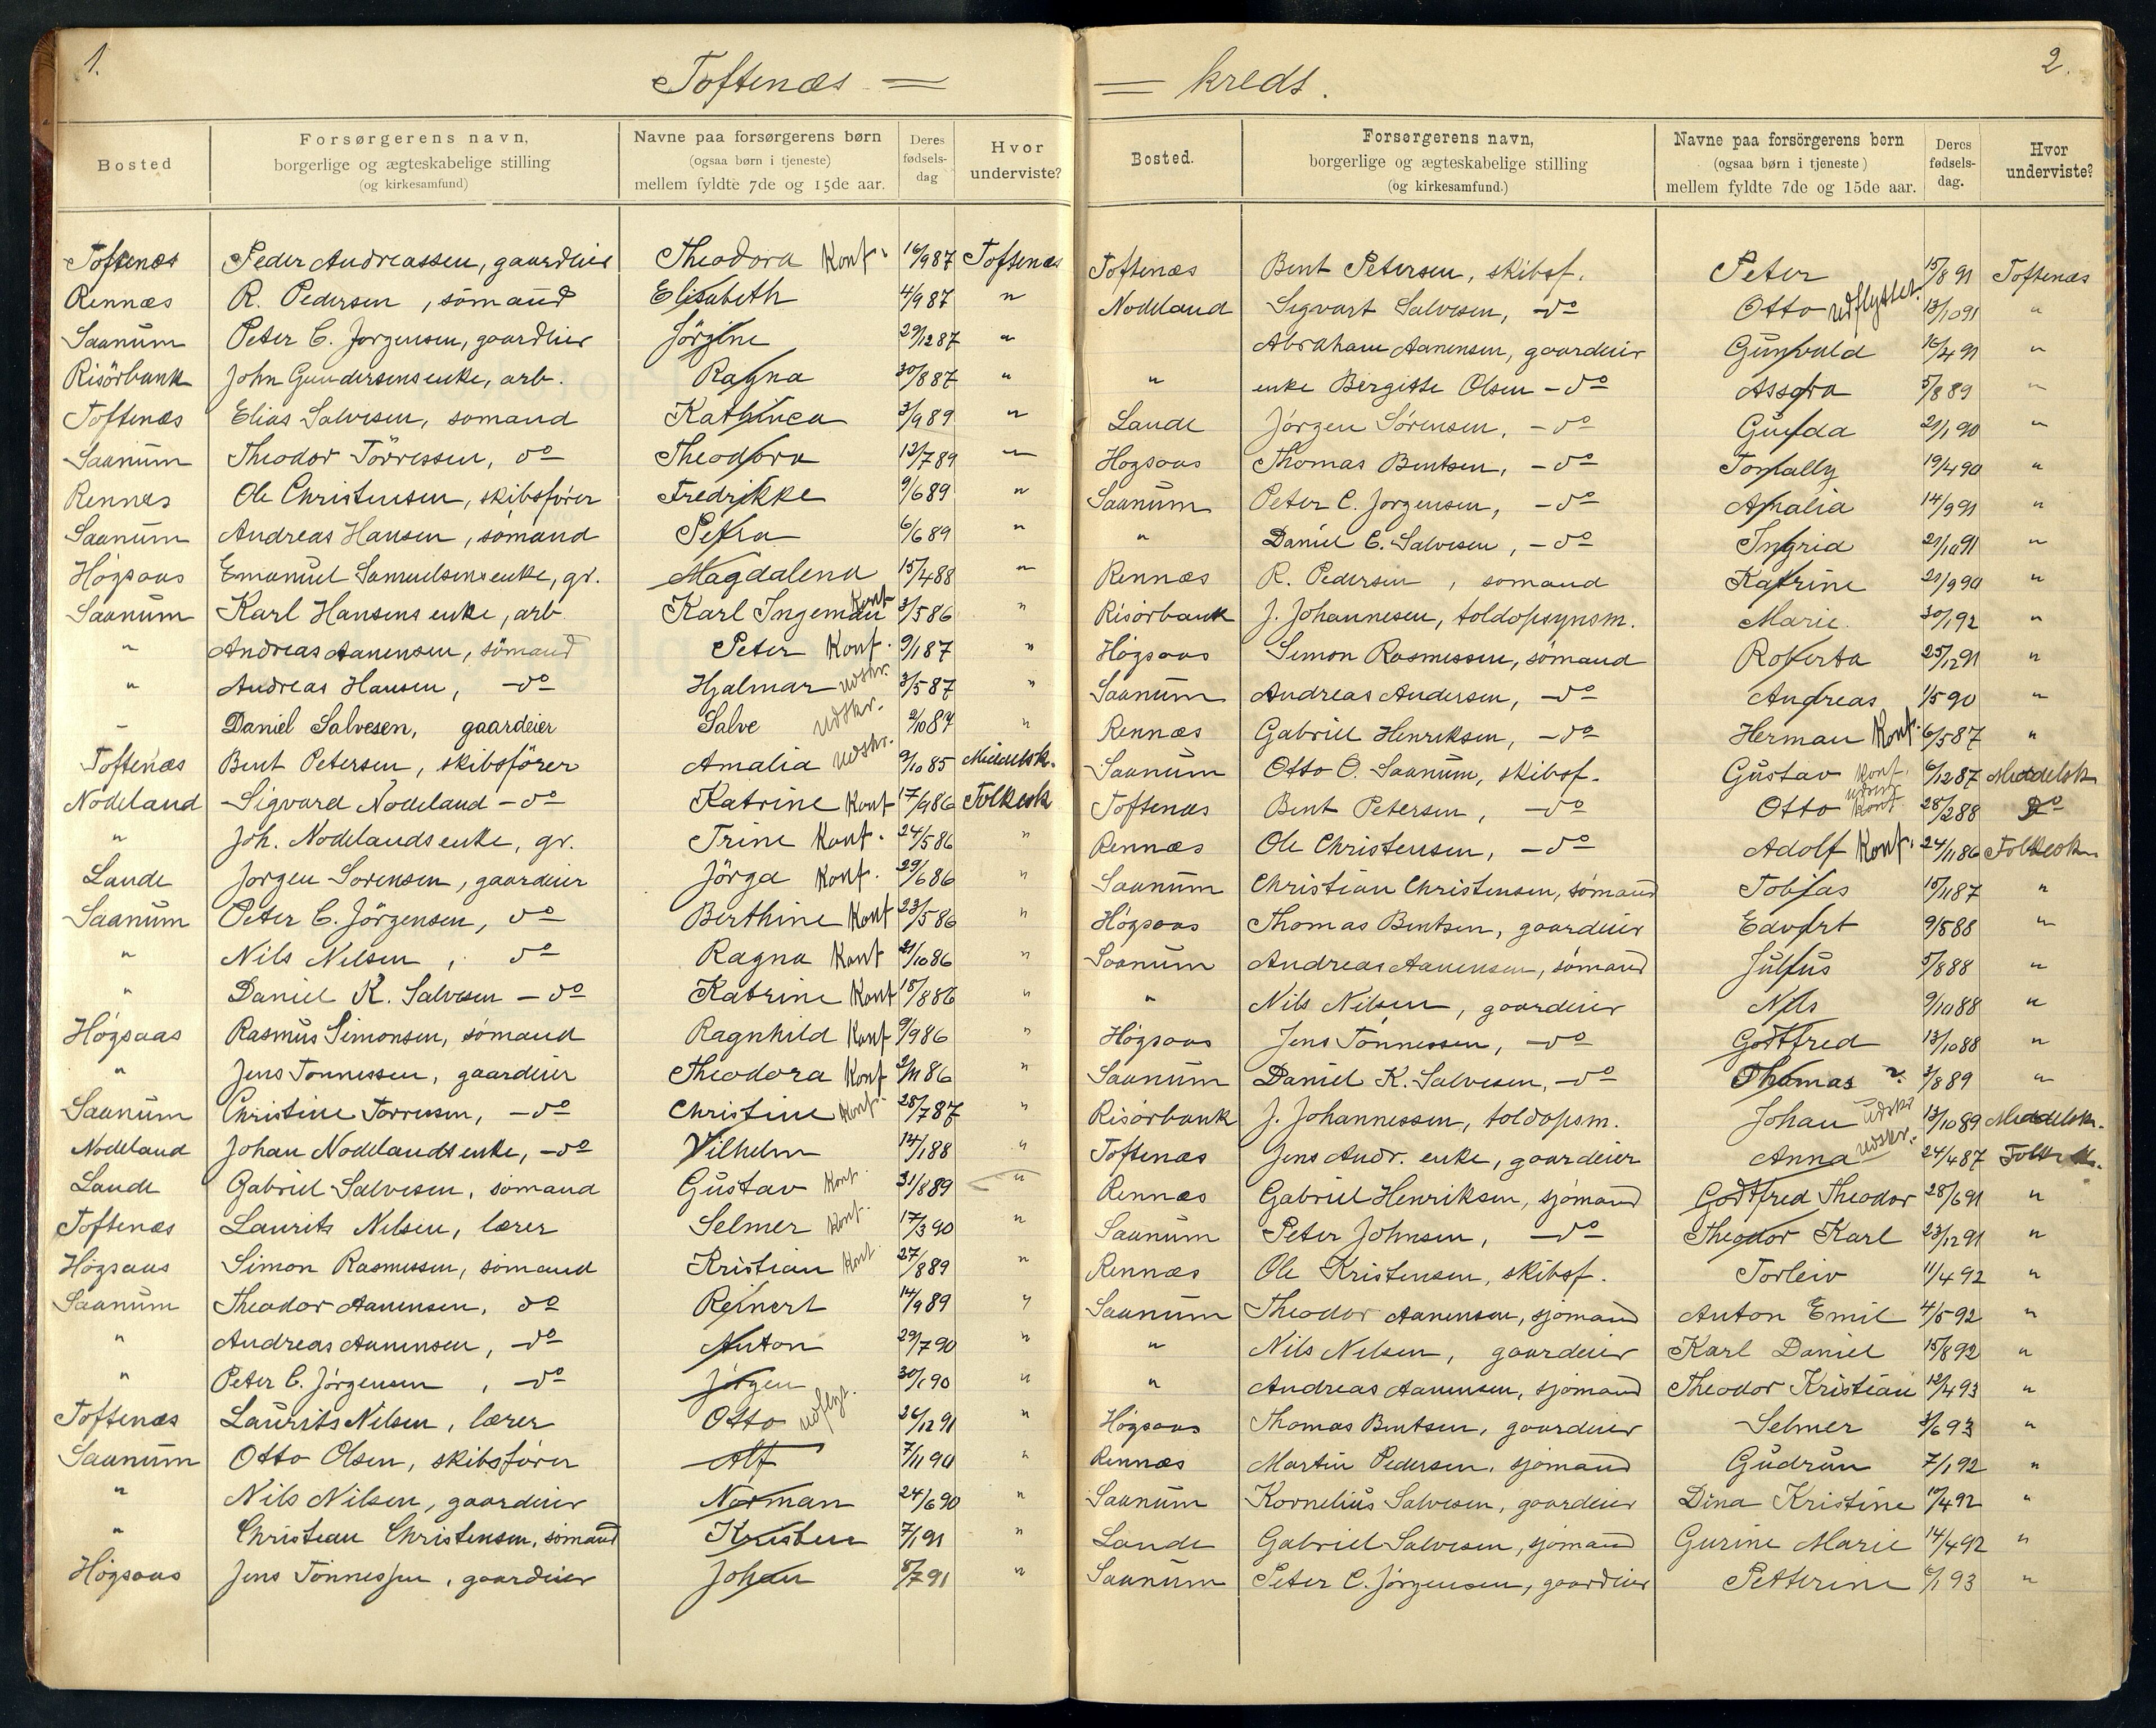 1.
Toftenæs =
Bosted | Forsørgerens navn, borgerlige og ægteskabelige stilling (og kirkesamfund) | Navne paa forsørgerens børn (ogsaa børn i tjeneste) mellem fyldte 7de og 15de aar. | Deres fødsels-dag | Hvor underviste?
Toftenæs Peder Andreassen, gaardeier Theodora Konf. 16/9 87 Toftenæs
Rennæs R. Pedersen, sömand Elisabeth 4/9 87 "
Saanum Peter C. Jorgensen, gaardeier Jörgine 29/12 87 "
Risörbank John Gundersens enke, arb. Ragna 30/8 87 "
Toftenæs Elias Salvesen, sömand Kathinca 3/9 89 "
Saanum Theodor Törressen, do Theodora 13/7 89 "
Rennæs Ole Christensen, skibsförer Fredrikke 9/6 89 "
Saanum Andreas Hansen, sömand Petra 6/6 89 "
Högsaas Emanuel Samuelsens enke, gr. Magdalena 15/4 88 "
Saanum Karl Hansens enke, arb Karl Ingeman Konf 3/5 86 "
" Andreas Aanensen, sömand Peter Konf. 9/1 87 "
" Andreas Hansen, -do Hjalmar udskr. 3/5 87 "
- Daniel Salvesen, gaardeier Salve udskr. 2/10 87 "
Toftenæs Bent Petersen, skibsförer Amalia udskr. 9/10 85 Middelsk.
Nodeland Sigvard Nodeland -do Katrine Konf 17/9 86 Folkesk
" Joh. Nodelands enke, gr. Trine Konf. 24/5 86 "
Lande Jorgen Sorensen, gaardeier Jörga Konf. 29/6 86 "
Saanum Peter C. Jörgensen, do Berthine Konf 23/5 86 "
" Nils Nelsen, do Ragna Konf 21/10 86 "
" Daniel K. Salvesen -do Katrine Konf 18/8 86 "
Högsaas Rasmus Simonsen, sömand Ragnhild Konf 9/9 86 "
" Jens Tönnessen, gaardeier Theodora Konf 2/11 86 "
Saanum Christine Torresen, -do Christine Konf. 28/7 87 "
Nodeland Johan Nodelands enke, -do Vilhelm 14/1 88 "
Lande Gabriel Salvesen, sömand Gustav Konf. 31/8 89 "
Toftenæs Laurits Nilsen, lærer Selmer Konf. 17/3 90 "
Högsaas Simon Rasmussen, sömand Kristian Konf. 27/8 89 "
Saanum Theodor Aanensen, do Reinert 14/9 89 "
" Andreas Aanensen, -do Anton 29/7 90 "
" Peter C. Jörgensen, -do Jörgen 30/1 90 "
Toftenæs Laurits Nilsen, lærer Otto udflyt. 26/12 91 "
Saanum Otto Olsen, skibsförer Alf 7/11 90 "
" Nils Nilsen, gaardeier Norman 24/6 90 "
" Christian Christensen, sömand Kristen 7/1 91 "
Högsaas Jens Tönnessen, gaardeier Johan 8/7 91 "
2.
= kreds.
Bosted. | Forsørgerens navn, borgerlige og ægteskabelige stilling (og kirkesamfund.) | Navne paa forsörgerens børn (ogsaa børn i tjeneste) mellem fyldte 7de og 15de aar. | Deres fødsels-dag. | Hvor underviste?
Toftenæs Bent Petersen, skibsf. Peter 15/8 91 Toftenæs
Nodeland Sigvart Salvesen, -do Otto udflyttet. 13/10 91 "
Abraham Aanensen, gaardeier Gunvald 16/4 91 "
" enke Bergitte Olsen -do Assora 5/8 89 "
Lande Jörgen Sörensen, -do Gunda 21/1 90 "
Högsaas Thomas Bentsen, -do Tomally 19/4 90 "
Saanum Peter C. Jorgensen, -do Amalia 14/9 91 "
" Daniel C. Salvesen, -do Ingrid 21/10 91 "
Rennæs R. Pedersen, sömand Katrine 21/9 90 "
Risörbank J. Johannesen, toldopsynsm. Marie 30/1 92 "
Högsaas Simon Rasmussen, sömand Roberta 25/12 91 "
Saanum Andreas Andersen, -do Andreas 1/5 90 "
Rennæs Gabriel Henriksen, -do Herman Konf. 6/5 87 "
Saanum Otto O. Saanum, skibsf. Gustav Konf. 6/12 87 Middelsk
Toftenæs Bent Petersen, -do Otto udskr. Konf 28/2 88 Do
Rennæs Ole Christensen, -do Adolf Konf. 24/11 86 Folkesk
Saanum Christian Christensen, sömand Tobias 15/11 87 "
Högsaas Thomas Bentsen, gaardeier Edvart 9/5 88 "
Saanum Andreas Aanensen, sömand Julius 5/8 88 "
" Nils Nilsen, gaardeier Nils 9/10 88 "
Högsaas Jens Tönnessen, -do Godtfred 13/10 88 "
Saanum Daniel K. Salvesen, -do Thomas 3/8 89 "
Risörbank J. Johannessen, toldopsm. Johan udskr 13/10 89 Middelsk.
Toftenæs Jens Andr. enke, gaardeier Anna udskr. 24/4 87 Folkesk.
Rennæs Gabriel Henriksen, sjömand Godtfred Theodor 28/6 91 "
Saanum Peter Johnsen, -do Theodor Karl 23/12 91 "
Rennæs Ole Kristensen, skibsf. Torleiv 11/4 92 "
Saanum Theodor Aanensen, sjömand Anton Emil 4/5 92 "
" Nils Nelsen, gaardeier Karl Daniel 15/8 92 "
" Andreas Aanensen, sjömand Theodor Kristian 12/4 93 "
Högsaas Thomas Bentsen, gaardeier Selmer 3/6 93 "
Rennæs Martin Pedersen, sjömand Gudrun 7/1 92 "
Saanum Kornelius Salvesen, gaardeier Dina Kristine 10/4 92 "
Lande Gabriel Salvesen, sjömand Gurine Marie 14/4 92 "
Saanum Peter C. Jörgensen, gaardeier Petterine 6/1 93 "